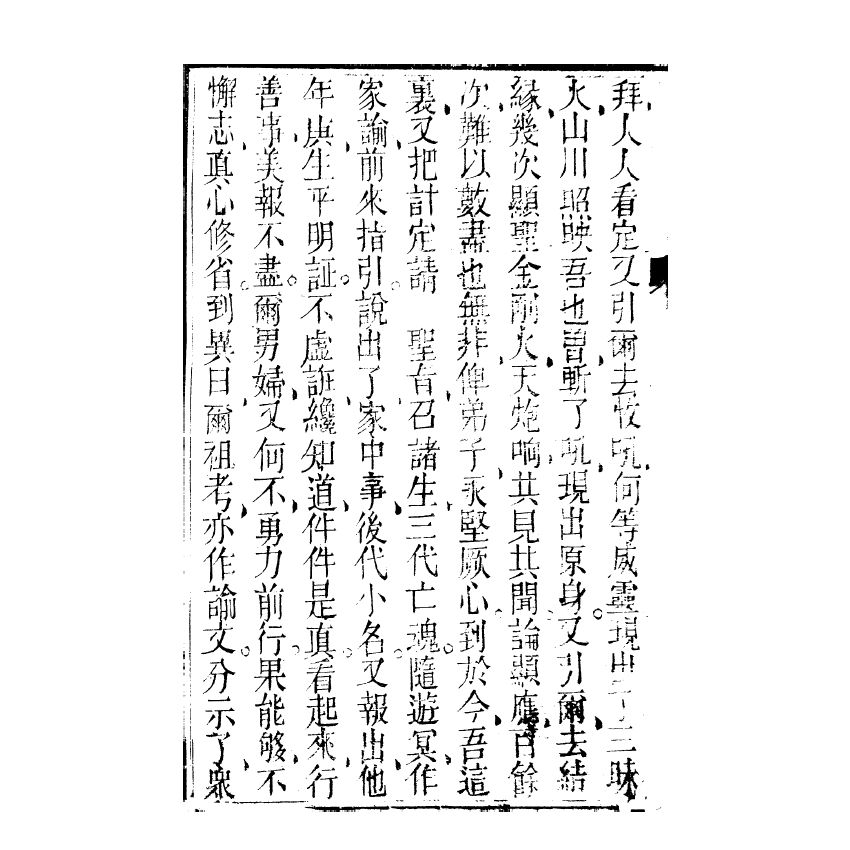 拜人人看定又引爾去收吼何等威靈現出了三昧
火山川照映吾也曾斬了吼現出原身又引爾去結
緣幾次顯聖金剛火天炮响共見共聞論顯應百餘
次難以數盡也無非俾弟子永堅厥心到於今吾這
裏又把計定請 聖旨召諸生三代亡魂隨遊冥作
家諭前來指引說出了家中事後代小名又報出他
年庚生平明証不虛誑纔知道件件是真看起來行
善事美報不盡爾男婦又何不勇力前行果能够不
懈志真心修省到異日爾祖考亦作諭文分示了衆